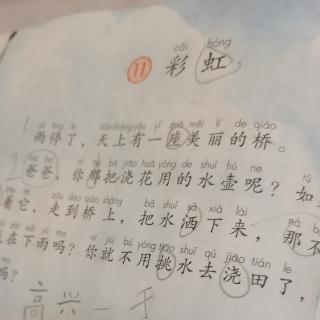 cǎi hóng
11 彩虹
yǔ tíng le tiān shàng yǒu yí zuò měi lì de qiáo
1 雨停了，天上有一座美丽的桥。
bà ba nǐ nà bǎ jiāo huā yòng de shuǐ hú ne
2 爸爸，你那把浇花用的水壶呢？如
zhe tā zǒu dào qiáo shàng bǎ shuǐ sǎ xià lái nà bú
着它，走到桥上，把水洒下来，那不
在下雨吗？你就不用挑水去浇田了，
吗？
高兴